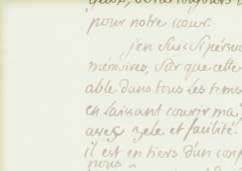 pour notre cœur.
j'en suis si persua
mémoires, sûr que cette
able dans tous les tems
en laissant courir ma
avec zele et facilité.
il est en tiers d'un con
nous